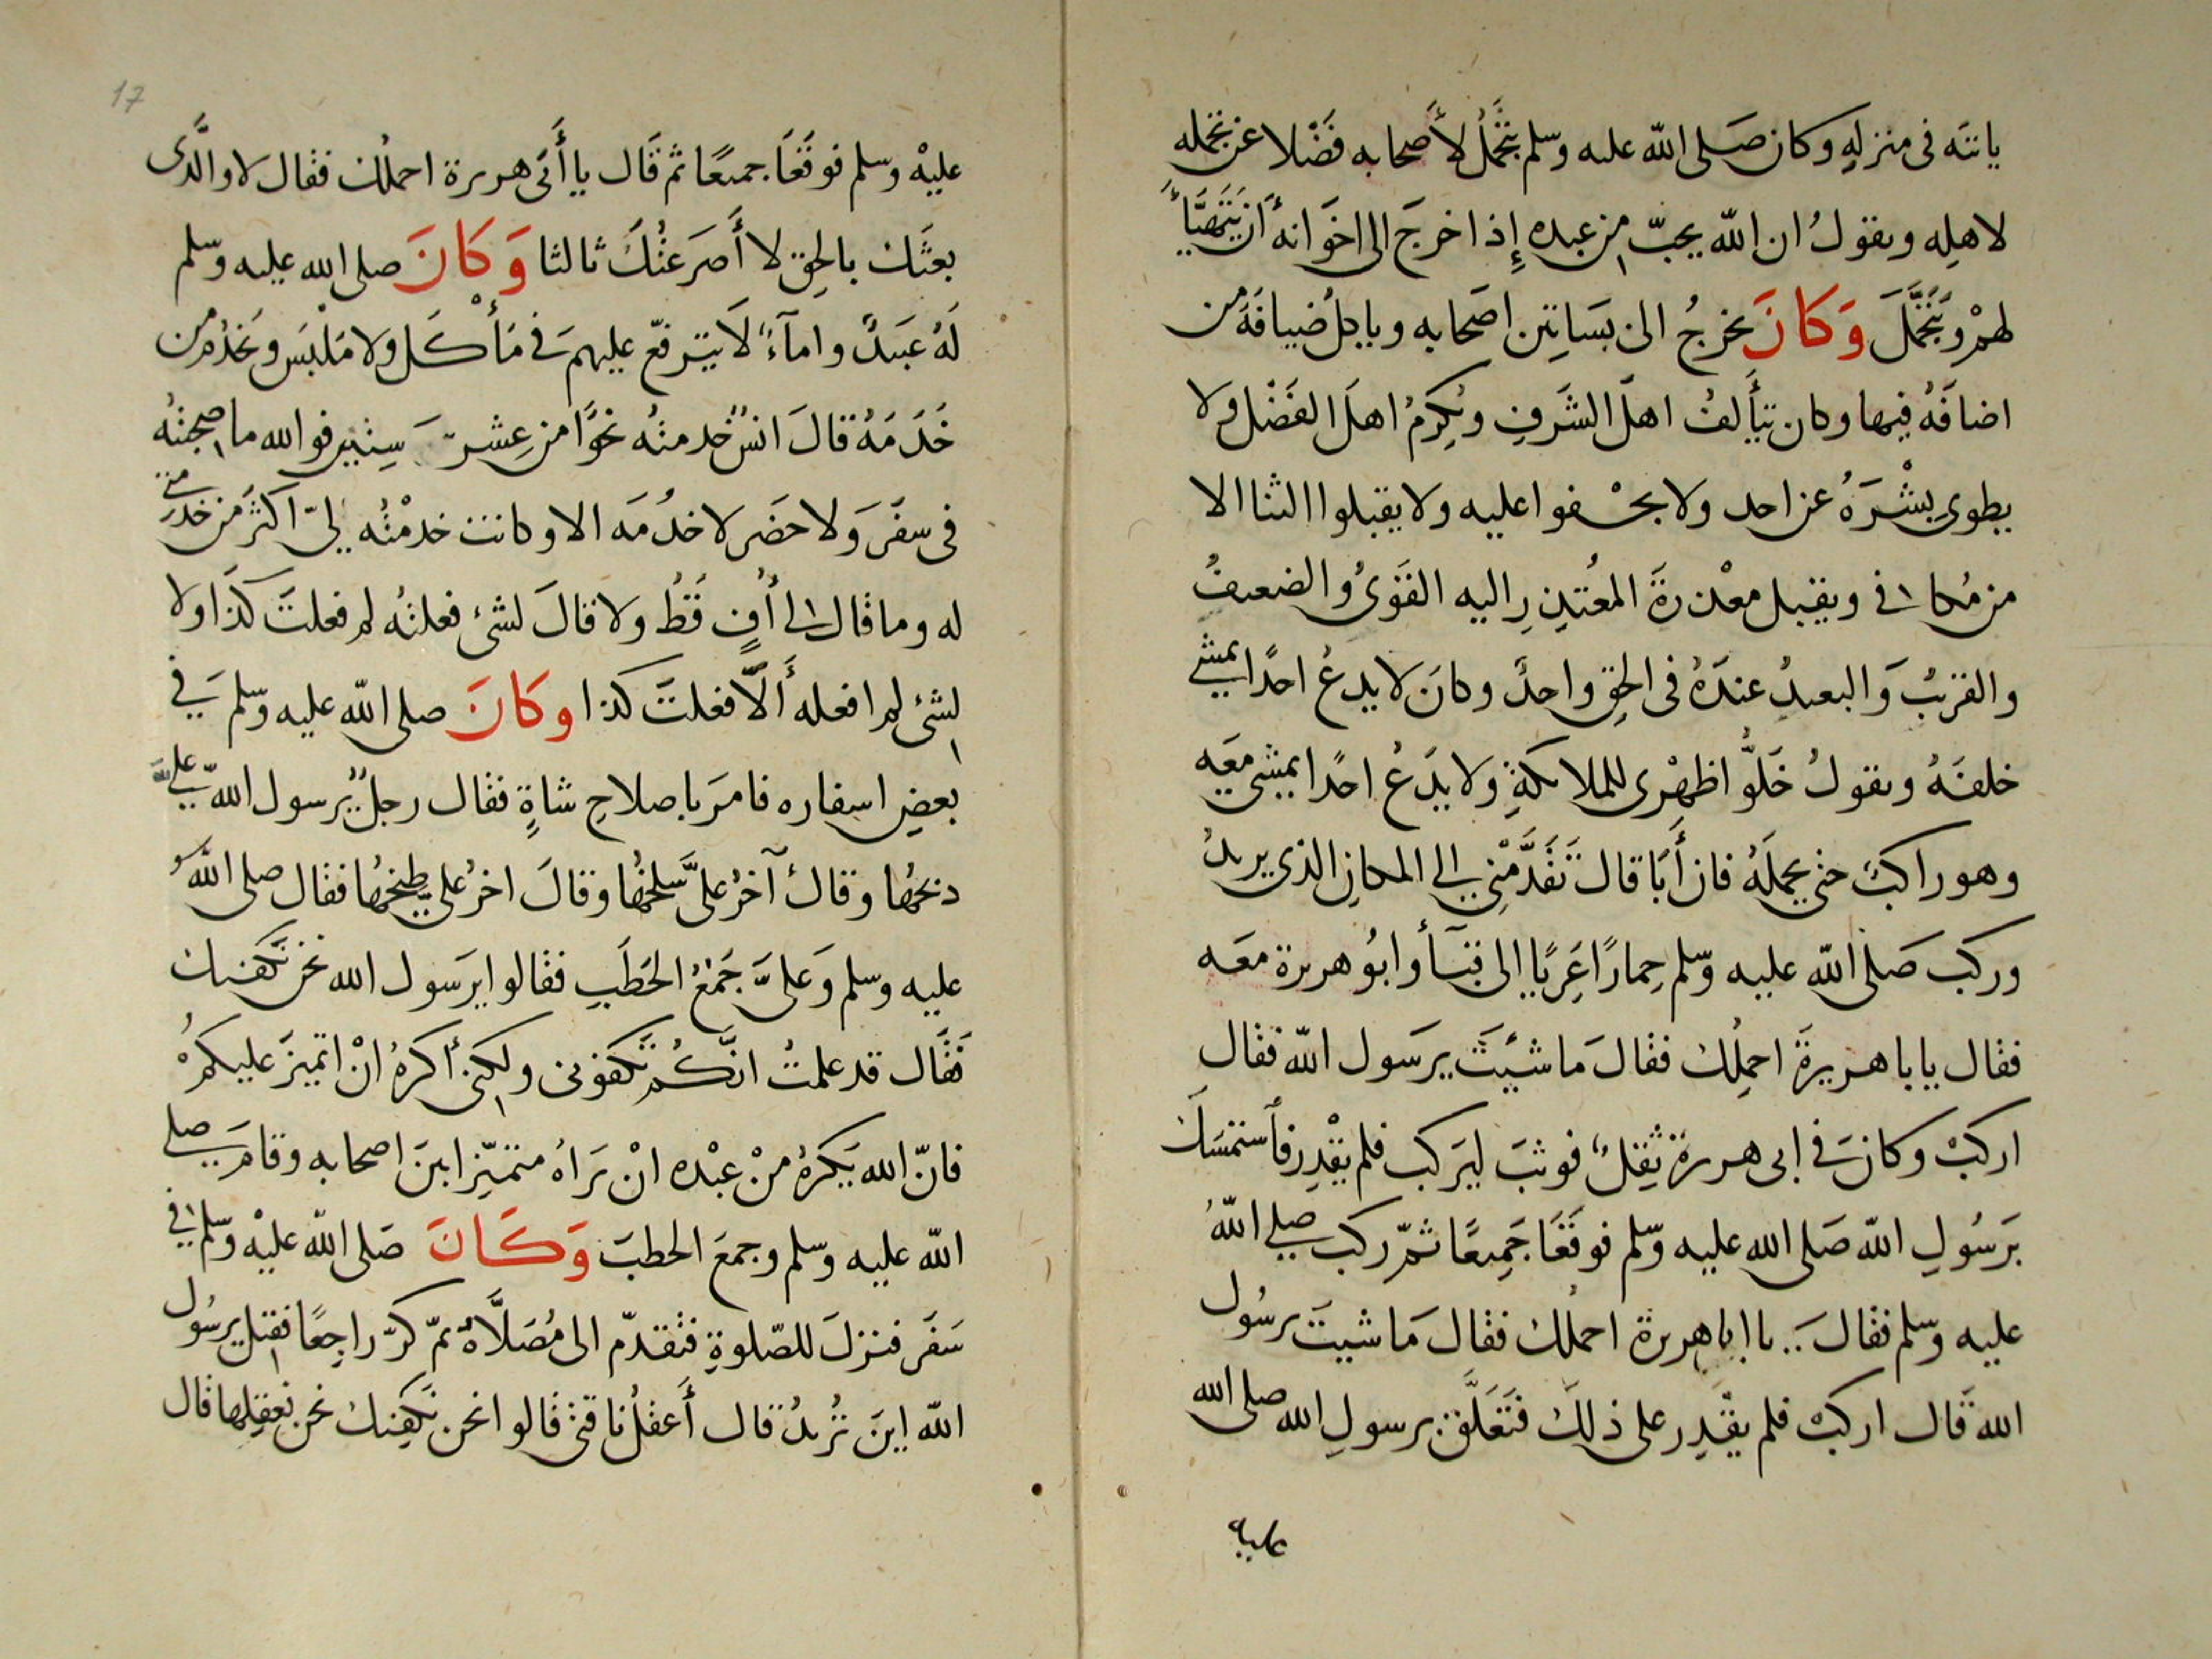 ياتته فى منزلهِ وكان صَلى الله عليه وسّلم يتجَّملُ لأَصحابه فَضْلا عن تجمله
لاهلِه ويقولُ ان الله يحبّ من عبده إِذا خرجَ الى اخوَانهِ أَن يَتَهيَّأَ
لهمْ وَيَتَجَمَّلَ وَكَانَ يخرجُ الى بسَاتِين اصَحابه وياكلُ ضيافَةَ من
اضافَهُ فيها وكان يتأَلفُ اهلَ الشَرفِ ويُكرِمُ اهلَ الفَضْل ولا
يطوى بِشْرَهُ عن احد ولا يجْـفوا عليه ولا يقبلوا الثنا الا
من مُكافى ويقبل معْذرةَ المعُتذِرِ اليه القَوىُّ والضعيفُ
والقريبُ وَالبعيدُ عندَهُ فى الحِق واحدٌ وكانَ لا يدعُ احدًا يمشى
خلفَهُ ويقولُ خَلُّوا ظهْرى للملائكةِ ولا يدَعُ احدًا يمشى معَه
وهو راكبٌ حتى يحملَهُ فان أَبَا قال تَقَدَّمْنِى الى المكانِ الذى يريدُ
وركبَ صَلى الله عليه وسّلم حِمارًا عَرِيًا الى قبَآء وابُو هريرة معَه
فقال يابا هريرةَ احمِلُك فقالَ ما شئتَ يرسَول الله فقال
اركبْ وكانَ فى ابى هريرةَ ثِقلٌ فوثبَ ليَركب فلم يقْدِر فاَستمسَكَ
بَرسُولِ الله صَلى الله عليه وسّلم فوقَعَا جَمِيعًا ثمّ ركب صلى اللهُ
عليه وسّلم فقالَ يا ابا هريرة احملُك فقالَ مَا شيتَ يرسُول
الله قَال اركبْ فلم يقْدِر على ذلكَ فَتَعَلَّقَ برسولِ الله صلى الله
عليه
17
عليْه وسلم فوقَعَا جميعًا ثم قَال يا أَبَى هريرة احملُك فقال لا والَّذى
بعثَك بالحِق لا أَصرَعتُكَ ثالثا وَكَانَ صلى الله عليه وسّلم
لَهُ عَبيدٌ وامآءٌ لاَ يترفّع عليهمَ فى مَأْكَل ولا مَلْبَس ويَخدُمُ من
خَدَمَهُ قالَ انسٌ خدمتُه نحوًا من عِشر سِنين فو الله ما صحبتُه
فى سفَر وَلا حضَر لاخدُمَه الا وكانت خدمْتُه لِى اكثَر من خدمتى
له وما قال لى أُفٍ قَطُ ولا قالَ لشئ فعلتُه لم فعلتَ كذَا ولا
لشئ لم افعله أَلَّا فعلتَ كذا وكَانَ صلى الله عليه وسّلم فى
بعضِ اسفاره فامرَ باصلاحِ شاةٍ فقال رجلٌ يرسول الله علىَّ
ذبحُها وقالَ آخرُ علىَّ سلخُها وقالَ اخرُ على طبخُها فقال صلى اللهُ
عليه وسلم وَعلىَّ جَمْعُ الحَطَبِ فقالوا يرَسول الله نحن نَكفيك
فَقَال قد علمتُ انَّكُم تَكفونى ولكنى أكرهُ انْ اتميزَ عليكمُ
فانّ الله يَكرهُ منْ عبْده انْ يَراهُ متميّزا بينَ اصحابه وقامَ صلى
الله عليه وسلم وجمعَ الحطبَ وَكَـانَ صَلى الله عليْه وسّلم فى
سَفَر فنزلَ للصّلوةِ فتقدّم الى مُصَلَّاهُ ثمّ كرّ راجعًا فقيل يرسُول
الله اينَ تُريدُ قال أَعقلُ ناقتى قالوا نحن نَكفِيك نحن نعقِلها قال